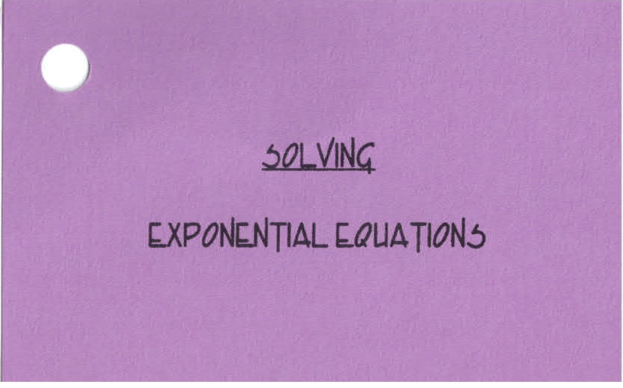 SOLVING
EXPONENTIAL EQUATIONS